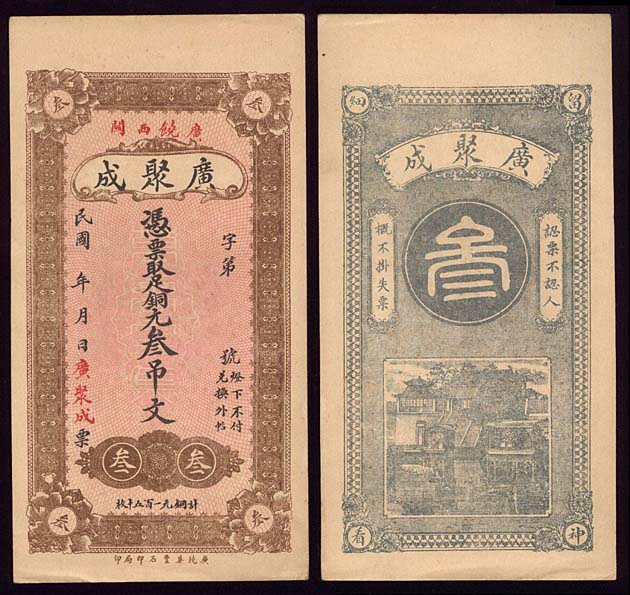 廣饒西関
廣聚成
字第 號
燈下不付
兌換外帖
憑票取足銅元叁吊文
民國 年 月 日 廣聚成票
叁 叁
計銅元一百五十枚
廣饒阜豐石印局印
留神細看
廣聚成
認票不認人
叁
概不掛失票